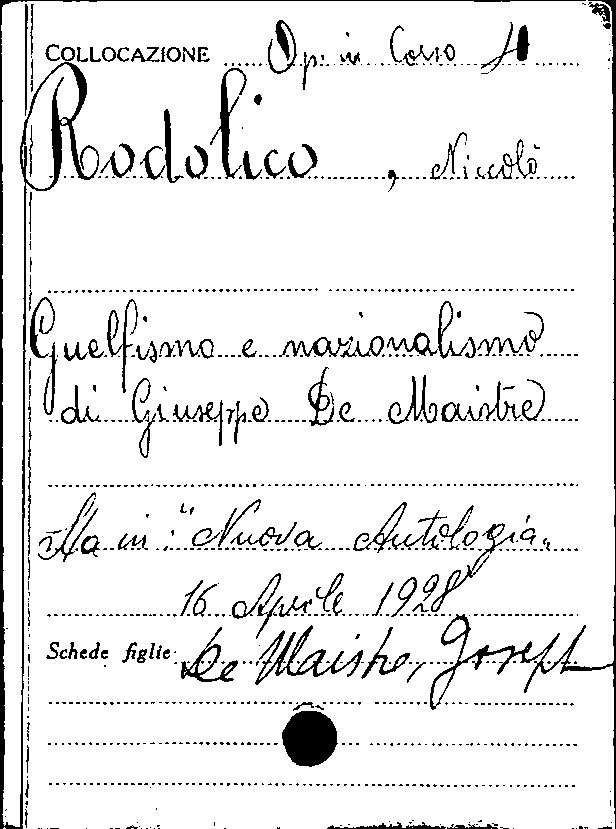 COLLOCAZIONE Op. in Corso
Rodolico, Niccolò
Guelfismo e nazionalismo
di Giuseppe De Maistre
Sta in: "Nuova Antologia"
16 Aprile 1928
Schede figlie De Maistre, Joseph